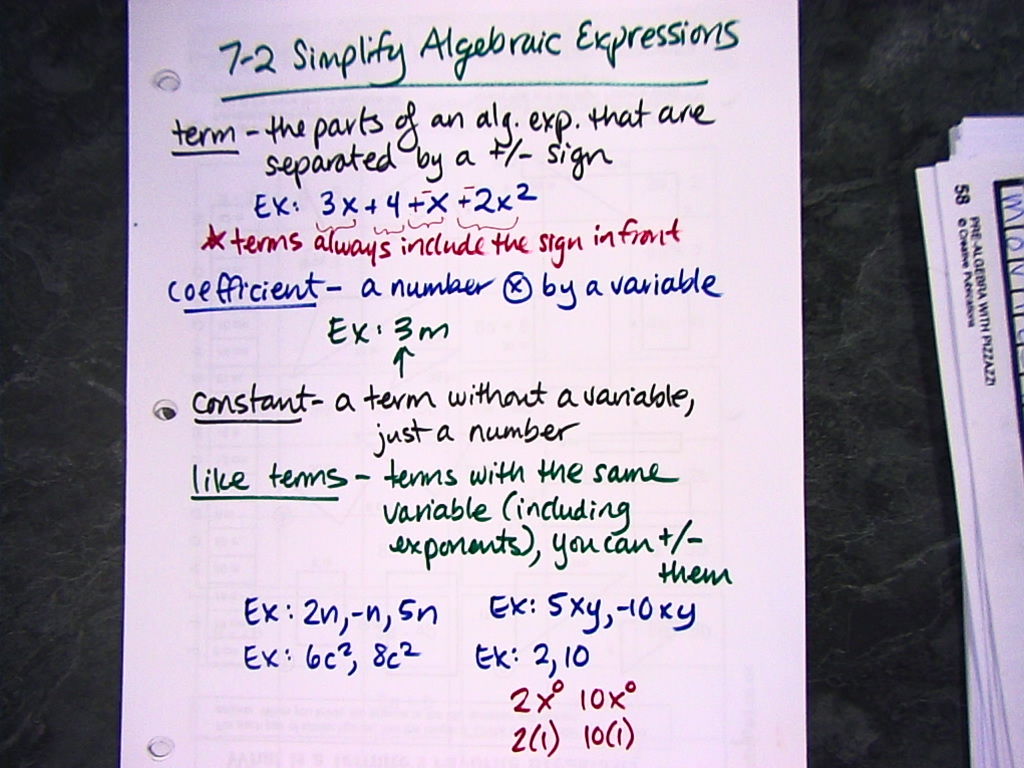 7-2 Simplify Algebraic Expressions
term - the parts of an alg. exp. that are
separated by a +/- sign
Ex: 3x + 4 + -x + -2x²
* terms always include the sign in front
coefficient - a number ⊗ by a variable
Ex: 3m
↑
constant - a term without a variable,
just a number
like terms - terms with the same
variable (including
exponents), you can +/-
them
Ex: 2n, -n, 5n
Ex: 5xy, -10xy
Ex: 6c², 8c²
Ex: 2, 10
2x⁰ 10x⁰
2(1) 10(1)
58
PRE-ALGEBRA WITH PIZZAZZ!
© Creative Publications